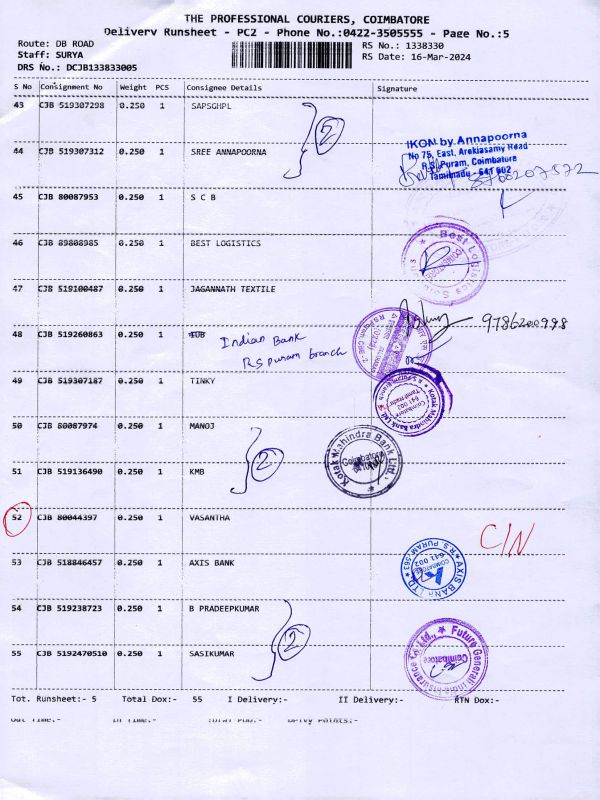 THE PROFESSIONAL COURIERS, COIMBATORE
Delivery Runsheet - PC2 - Phone No.:0422-3505555 - Page No.:5
Route: DB ROAD
RS No.: 1338330
Staff: SURYA
RS Date: 16-Mar-2024
DRS No.: DCJB133833005
S No Consignment No Weight PCS Consignee Details Signature
43 CJB 519307298 0.250 1 SAPSGHPL
2
IKON by Annapoorna
No 75, East, Arokiasamy Road
R.S. Puram, Coimbatore
Tamilnadu - 641 002
44 CJB 519307312 0.250 1 SREE ANNAPOORNA
45 CJB 80087953 0.250 1 S C B
46 CJB 89808985 0.250 1 BEST LOGISTICS
Best Logistics
47 CJB 519100487 0.250 1 JAGANNATH TEXTILE
48 CJB 519260863 0.250 1 IUB Indian Bank
RS puram branch
49 CJB 519307187 0.250 1 TINKY
Kotak Mahindra Bank Ltd.
Coimbatore
641 002
50 CJB 80087974 0.250 1 MANOJ
2
Kotak Mahindra Bank Ltd.
Coimbatore
51 CJB 519136490 0.250 1 KMB
52 CJB 80044397 0.250 1 VASANTHA
C/N
53 CJB 518846457 0.250 1 AXIS BANK
AXIS BANK LTD
R S PURAM, 563
COIMBATORE
641 002
54 CJB 519238723 0.250 1 B PRADEEPKUMAR
2
Future Generali India Insurance Co Ltd.,
Coimbatore
55 CJB 5192470510 0.250 1 SASIKUMAR
Tot. Runsheet:- 5 Total Dox:- 55 I Delivery:- II Delivery:- RTN Dox:-